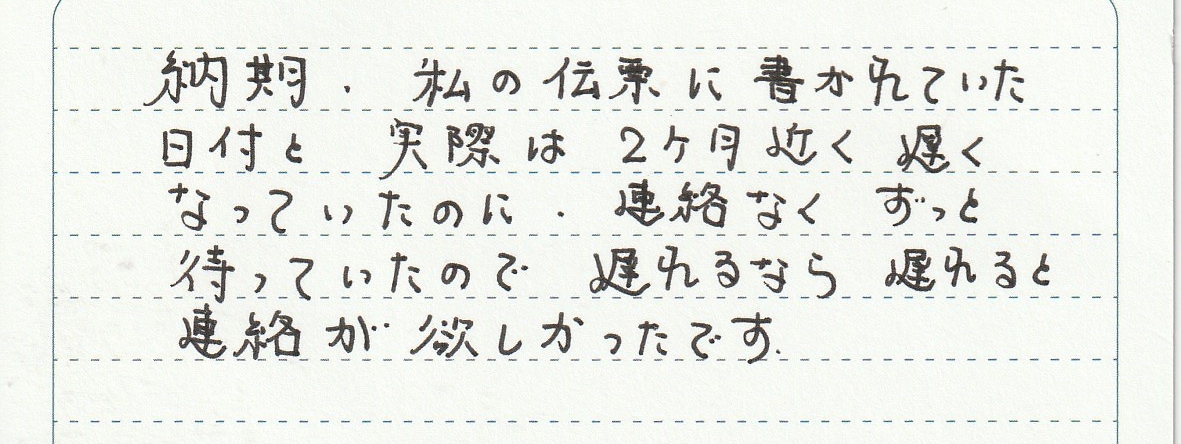 納期.私の伝票に書かれていた
日付と 実際は 2ヶ月近く 遅く
なっていたのに.連絡なく ずっと
待っていたので 遅れるなら 遅れると
連絡が欲しかったです.